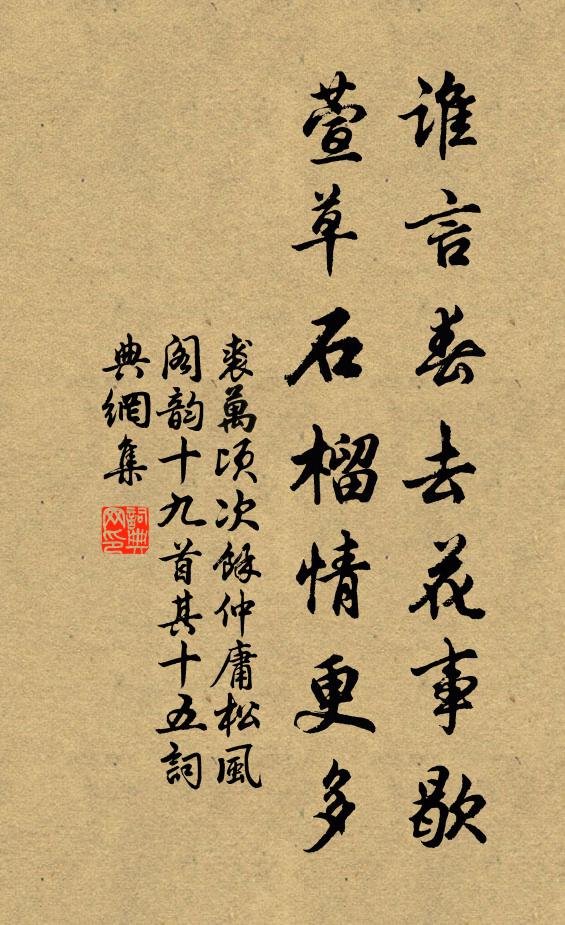 誰言春去花事歇
萱草石榴情更多
裘萬頃次餘仲庸松風
閣韵十九首其十五詞
典網集
詞典
网印